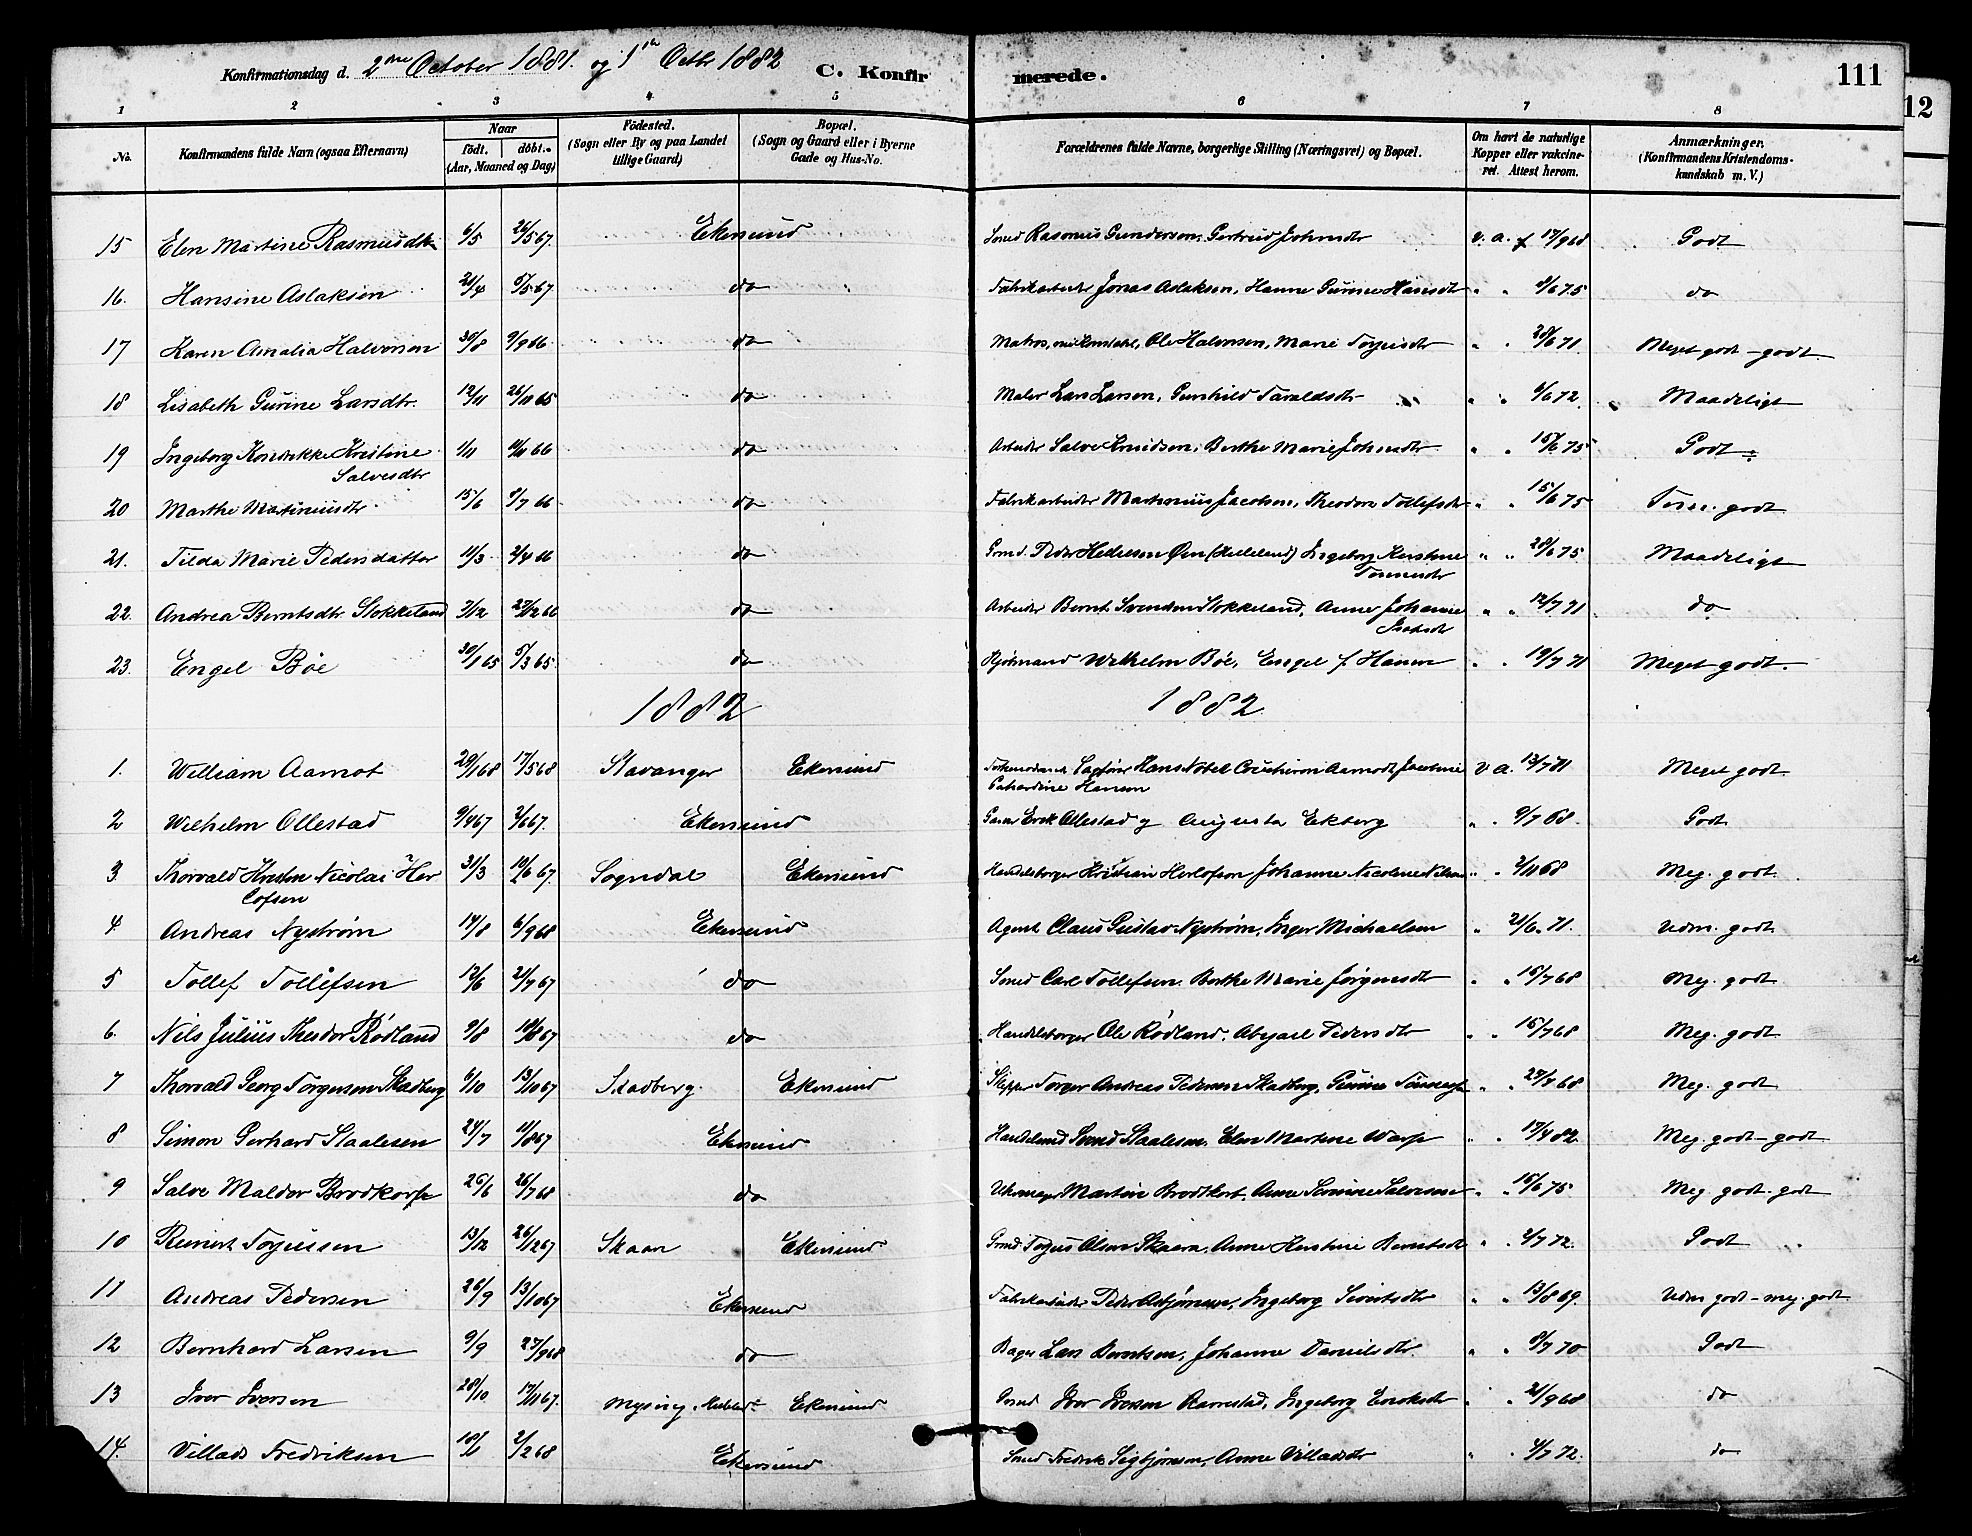 Konfirmationsdag d. 2den October 1881. og 1ste Octb. 1882 C. Konfir merede. 111
12
1 2 3 4 5 6 7 8
No. Konfirmandens fulde Navn (ogsaa Efternavn) Naar födt. döbt. (Aar, Maaned og Dag) Födested. (Sogn eller By og paa Landet tillige Gaard) Bopæl. (Sogn og Gaard eller i Byerne Gade og Hus-No. Forældrenes fulde Navne, borgerlige Stilling (Næringsvei) og Bopæl. Om havt de naturlige Kopper eller vakcineret. Attest herom. Anmærkninger. (Konfirmandens Kristendomskundskab m. V.)
15 Elen Martine Rasmusdtr 6/5 26/5 67. Ekersund Smed Rasmus Gundersen, Gertrud Johnsdtr v. a. 17/9 68 Godt
16. Hansine Aslaksen 21/4 5/5 67 do Fabrikarbeider Jonas Aslaksen, Hanne Gurine Hansdtr " " 9/6 75 do
17 Karen Amalia Halvorsen 30/8 9/9 66 do Matros, Ole Halvorsen, Marie Torjusdtr " " 28/6 71. Meget godt - godt.
18 Lisabeth Gurine Larsdtr. 12/11 26/11 65 do Maler Lars Larsen, Gunhild Taraldsdtr " " 6/6 72. Maadeligt
19 Ingeborg Kristine Salvesdtr 1/11 11/11 66 do Arbeider Salve Knudsen, Berthe Marie Johnsdtr " " 15/6 75 Godt
20 Marthe Martiniusdtr 15/6 8/7 66 do Fabrikarbeider Martinius Jacobsen, Theodora Tollefsdtr " " 15/6 75 godt
21. Tilda Marie Pedersdatter 11/3 2/4 66 do Peder (Helleland) Ingeborg Kirstine " " 28/6 75 Maadeligt
22. Andrea Berntsdtr. Stokkeland 3/12 27/12 66 do Arbeider Bernt Svendsen Stokkeland, Anne Johanne " " 12/7 71 do
23. Engel Böe 30/1 65 5/3 65 do Wilhelm Böe, Engel f. Hansen " " 19/7 71 Meget godt.
1882 1882
1. William Aamot 29/1 68 17/5 68 Stavanger Ekersund Hans Aamodt, Jacobine Cathardine Hansen v a. 13/7 81 Meget godt
2 Wilhelm Ollestad 9/4 67 2/6 67. Ekersund Garver Erik Ollestad og Augusta Ekberg " " 9/7 68. Godt
3 Thorvald Nicolai Herlofsen 31/3 10/6 67. Sogndal Ekersund Handelsborger Kristian Herlofson Johanne Nicoline Nilsen " " 2/11 68 Meg. godt.
4. Andreas Nyström 14/8 6/9 68 Ekersund Agent Claus Gustav Nyström, Inger Michaelsen " 21/6 71. Udm. godt
5 Tollef Tollefsen 12/6 21/7 67 do Smed Carl Tollefsen. Berthe Marie Jörgensdtr " " 15/7 68 Meg. godt
6. Nils Julius Theodor Rödland 9/8 18/8 67 do Handelsborger Ole Rödland. Abegael Pedersdtr " " 15/7 68 Meg. godt
7 Thorvald Georg Torgersen Skadberg 6/10 13/10 67 Skadberg. Ekersund Skipper Torger Andreas Pedersen Skadberg, Gurine " " 27/7 68 Meg. godt
8 Simon Gerhard Staalesen 24/7 11/8 67 Ekersund Staalesen, Elen Martine " " 17/4 82. Meg. godt - godt
9 Salve Maldor Brodkorp 25/6 26/7 68 do Uhrmager Martin Brodtkorb. Anne Severine Salvesen " " 15/6 75 Meg. godt. godt
10 Reinert Torjussen 13/12 26/12 67 Skaar Ekersund Torjus Olsen Skaara, Anne Kirstine Berntsdtr " " 4/7 72. Godt
11 Andreas Pedersen 26/9 13/10 67 Ekersund Fabrikarbeider Peder Asbjörnsen, Ingeborg Sivertsdtr " " 13/8 69. Udm godt - meg. godt
12 Bernhard Larsen 9/9 27/9 68 do Bager Lars Berntsen, Johanne Danielsdtr. " " 8/7 70 Godt
13 Iver Iversen 28/10 17/11 67. Mysing, Ekersund Iver Iversen Ingeborg Enoksdtr " " 21/9 68 do
14. Villads Fredriksen 2/2 68 Ekersund Smed Fredrik Sigbjörnsen, Anne Villadsdtr " " 4/7 72. do